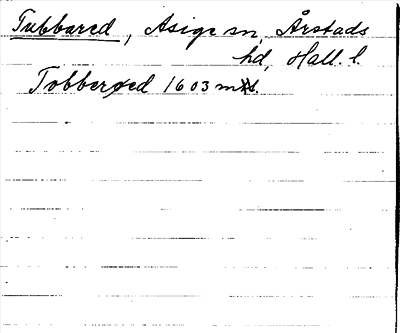 Tubbared, Asige sn, Årstads
hd, Hall. l.
Tobberød 1603 mtl.